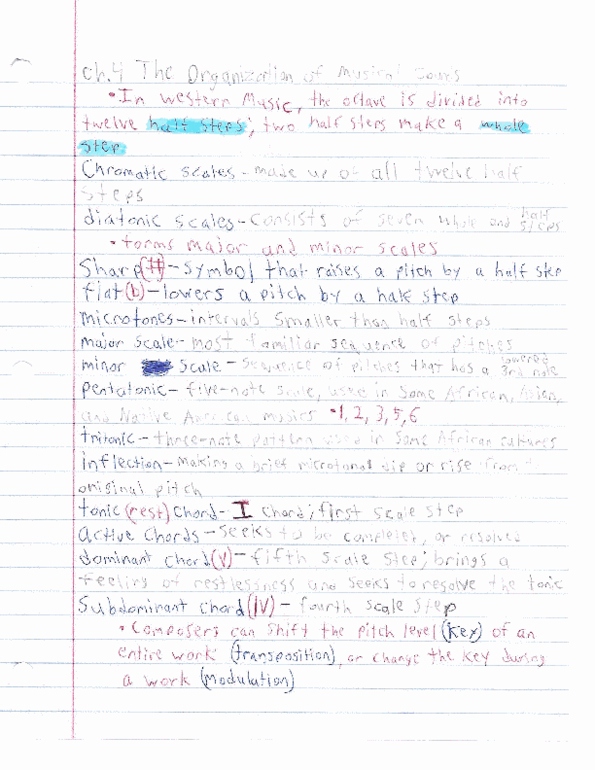 Ch.4 The Organization of Musical Tones
• In western Music, the octave is divided into
twelve half steps; two half steps make a whole
step
Chromatic scales - made up of all twelve half
steps
diatonic scales - consists of seven whole and half steps
• forms major and minor scales
Sharp (#) - symbol that raises a pitch by a half step
flat (b) - lowers a pitch by a half step
microtones - intervals smaller than half steps
major scale - most familiar sequence of pitches
minor scale - sequence of pitches that has a lowered 3rd note
pentatonic - five-note scale, used in some African, Asian,
and Native American musics • 1, 2, 3, 5, 6
tritonic - three-note pattern used in some African cultures
inflection - making a brief microtonal dip or rise from
original pitch
tonic (rest) chord - I chord; first scale step
active chords - seeks to be completed, or resolved
dominant chord (V) - fifth scale step; brings a
feeling of restlessness and seeks to resolve the tonic
Subdominant chord (IV) - fourth scale step
• Composers can shift the pitch level (key) of an
entire work (transposition), or change the key during
a work (modulation)